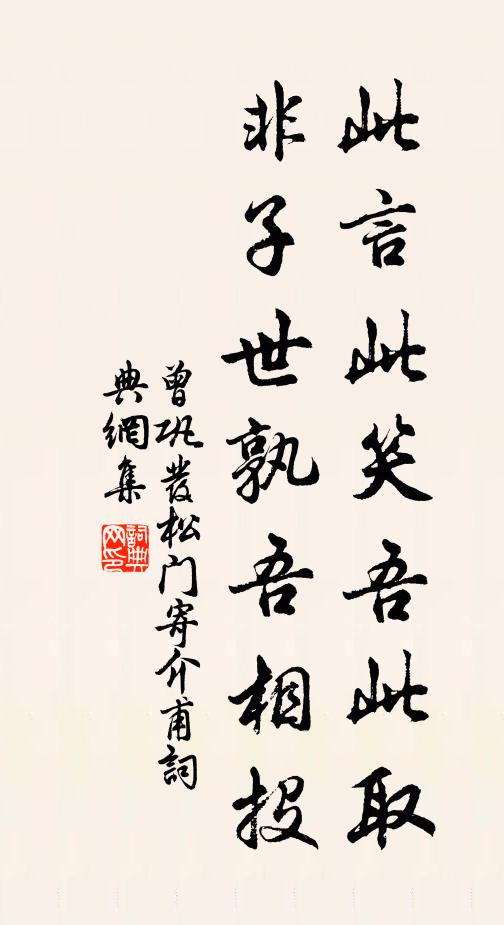 此言此笑吾此取
非子世孰吾相投
曾巩發松门寄介甫詞
典網集
詞典網印